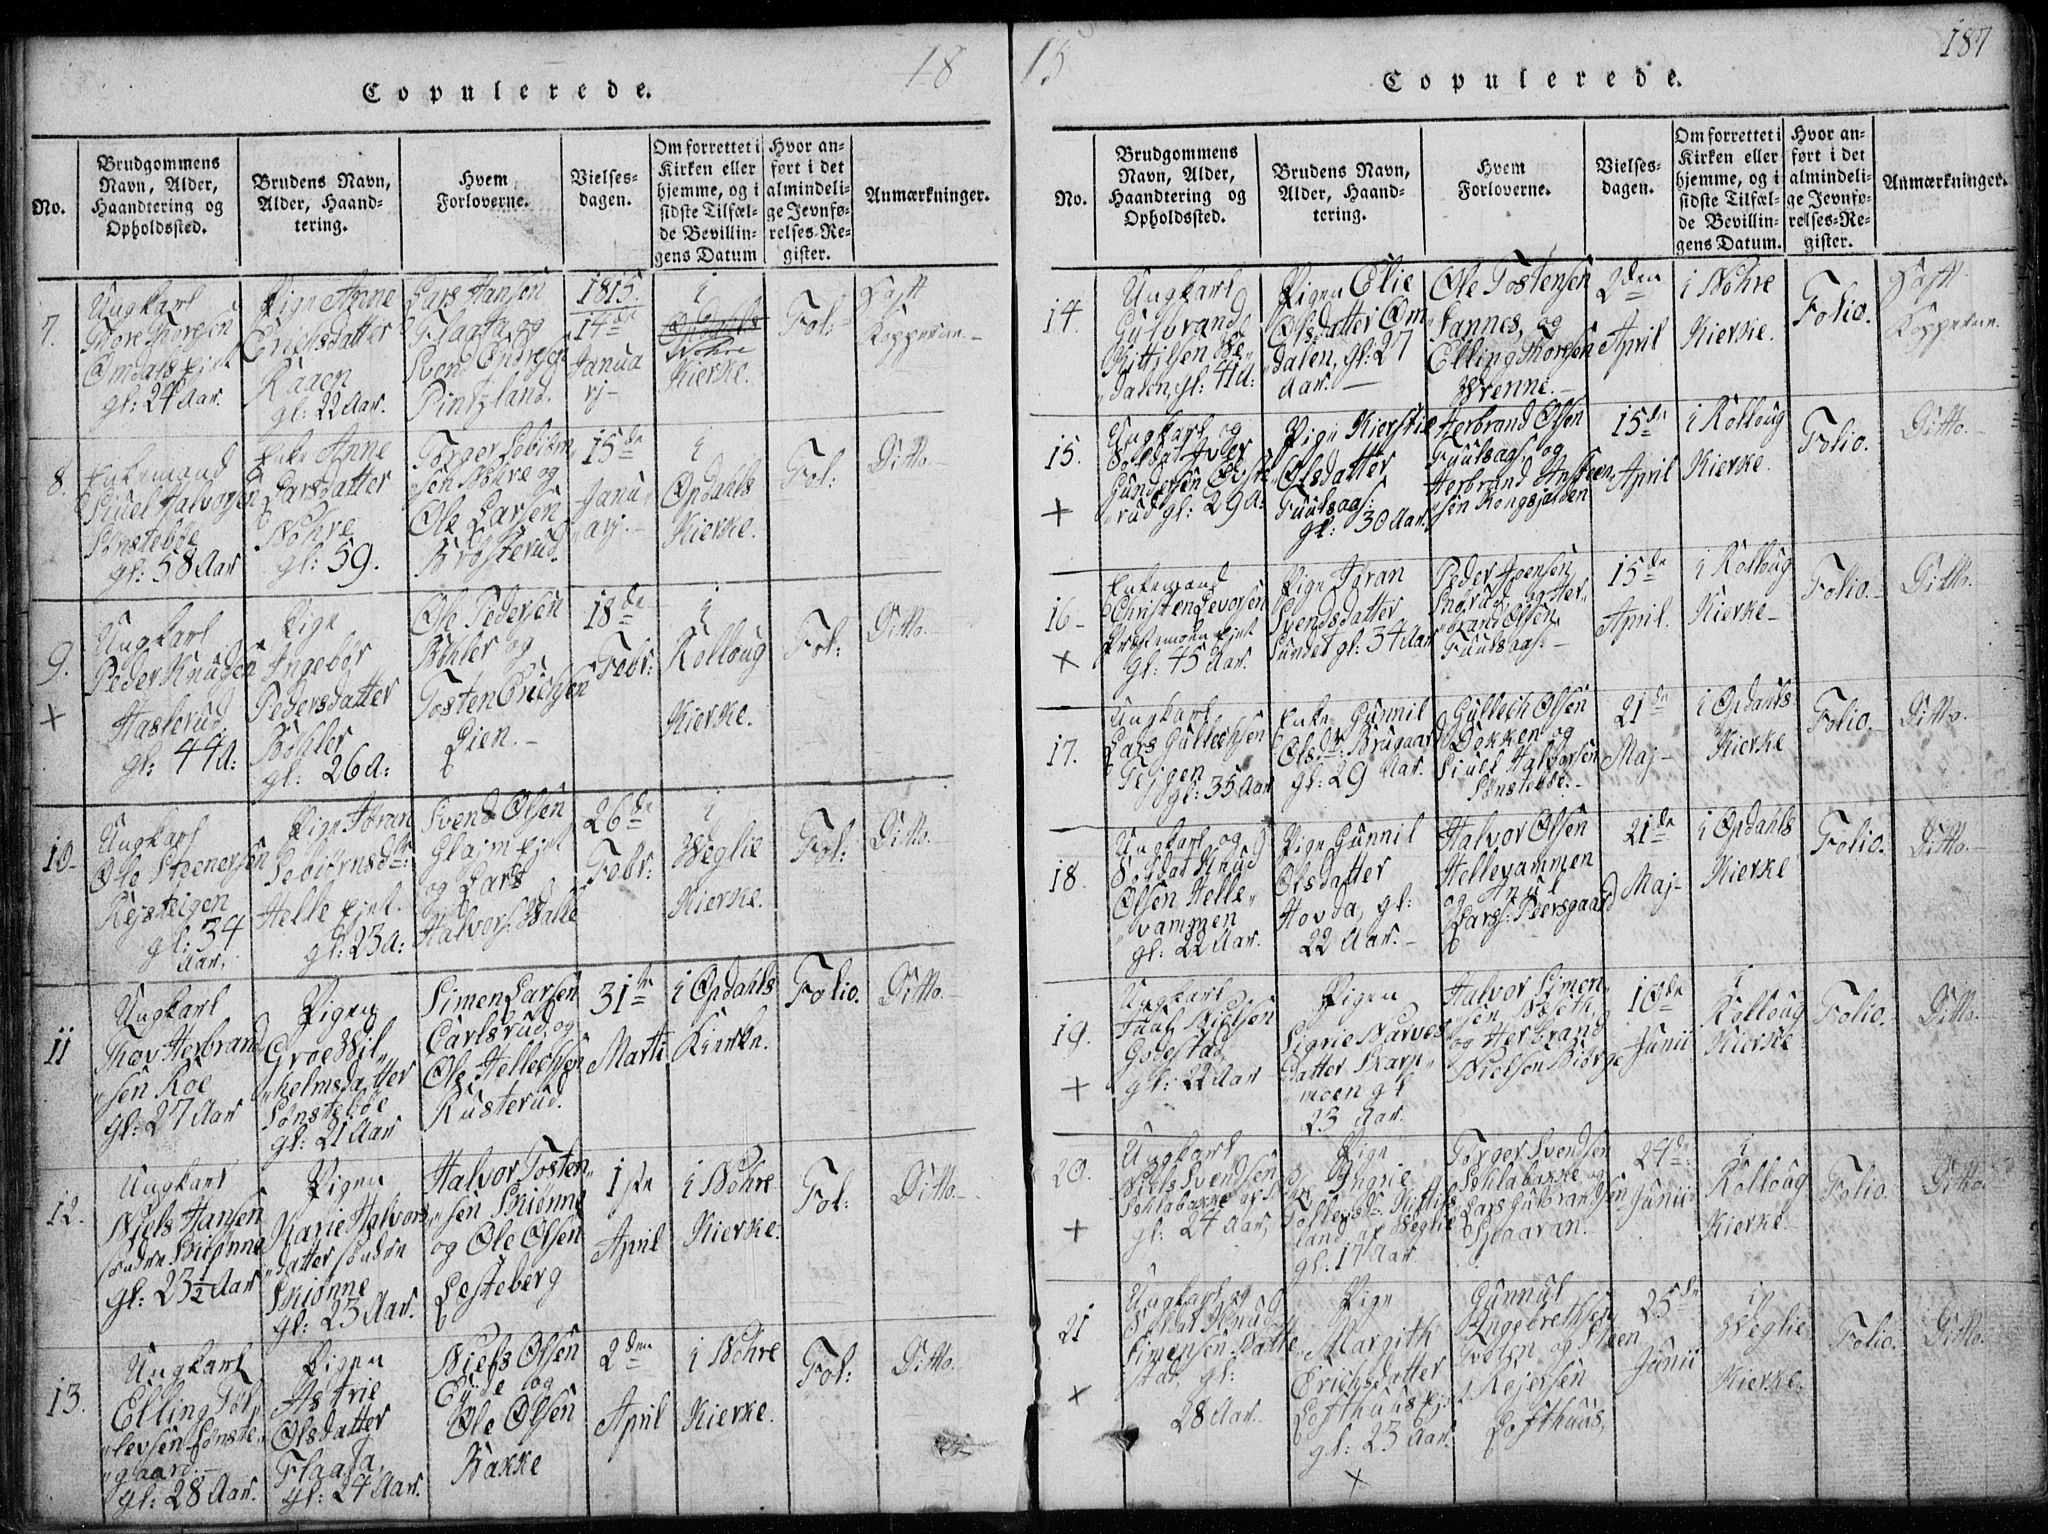 18
Copulerede.
No.
Brudgommens
Navn, Alder,
Haandtering og
Opholdssted.
Brudens Navn,
Alder, Haand-
tering.
Hvem
Forloverne.
Vielses-
dagen.
Om forrettet i
Kirken eller
hjemme, og i
sidste Tilfæl-
de Bevillin-
gens Datum
Hvor an-
ført i det
almindeli-
ge Jevnfø-
relses-Re-
gister.
Anmærkninger.
7.
Ungkarl
Thore Thoresen
Omdals ejet
gl: 24 Aar.
Pige Anne
Erichsdatter
Kaaen
gl: 22 Aar.
Lars Hansen
Flaata og
Svend Endresen
Pintzland.
1815.
14de
Janua
rj-
i
Nohre
Kierke.
Fol:
Hafft
Kopperne.-
8.
Enkemand
Siuel Halvorsen
Sønstebøe
gl: 58 Aar
Enke Anne
Larsdatter
Nohre
gl: 59.
Torger Sebiørn„
„sen Nohre og
Ole Larsen
Brosterud.
15de
Janu„
„arj.-
i
Opdahls
Kierke.
Fol:
Ditto.-
9.
+
Ungkarl
Peder Knudsen
Hasterud
gl: 44 A:
Pige
Ingebor
Pedersdatter
Bøhler
gl: 26 A:
Ole Pedersen
Bøhler og
Tosten Erichsen
Lien.-
18de
Febr:
i
Rolloug
Kierke.
Fol:
Ditto.-
10.
Ungkarl
Ole Steenersen
Rejsteigen
gl: 34
Aar.
Pige Jøran
Sebiørnsdtr:
Helle ejet.
gl: 23 A:
Svend Olsen
Glaim ejet
og Lars
Halvors: Walle
26de
Febr:
i
Weglie
Kierke.
Fol:
Ditto.-
11
Ungkarl
Thov Herbrand
„sen Roe
gl: 27 Aar
Pigen
Groe Wil„
„helmsdatter
Sønstebøe
gl: 21 Aar
Simen Larsen
Carlsrud, og
Ole Hellechsen
Rusterud.
31te
Marti
i Opdahls
Kierke.
Folio.
Ditto.-
12.
Ungkarl
Niels Hansen
søndre Skiønne
gl: 23 1/2 Aar
Pigen
Karie Halvors
„datter søndre
Skiønne
gl: 23 Aar.
Halvor Tosten„
„sen Skiønne
og Ole Olsen
Lesteberg
1ste
April
i Nohre
Kierke.
Fol:
Ditto.-
13.
Ungkarl
Elling Tol„
„levsen Sønste„
„gaard.-
gl: 28 Aar.
Pigen
Astrie
Olsdatter
Flaata,
gl: 24 Aar.
Niels Olsen
Eyde og
Ole Olsen
Bakke
2den
April
i Nohre
Kierke.
Fol:
Ditto.
15
187
Copulerede.
No.
Brudgommens
Navn, Alder,
Haandtering og
Opholdssted.
Brudens Navn,
Alder, Haand-
tering.
Hvem
Forloverne.
Vielses-
dagen.
Om forrettet i
Kirken eller
hjemme, og i
sidste Tilfæl-
de Bevillin-
gens Datum.
Hvor an-
ført i det
almindeli-
ge Jevnfø-
relses-Re-
gister.
Anmærkninger.
14.
Ungkarl
Gulbrand
Kittilsen
dalen, gl: 41 A:
Pigen Elie
Olsdatter Om„
„dalen, gl: 27
Aar.-
Ole Tostensen
Sannes, og
Elling Thoresen
Wrenne.-
2den
April
i Nohre
Kierke.
Folio.
Hafft
Kopperne.
15.
+
Ungkarl og
Soldat Iver
Gundersen
„rud gl: 29 A:
Pige Kierstie
Olsdatter
Fuulsaas:
gl: 30 Aar.
Herbrand Olsen
Fuulsaas, og
Herbrand Ansteen„
„sen Kongsjorden
15de
April
i Rolloug
Kierke.
Folio.
Ditto.-
16-
+
Enkemand
Christen Sevorsen
Prestemoen ejet
gl: 45 Aar.
Pige Jøran
Svendsdatter
Sundet gl: 34 Aar
Peder Joensen
og Her„
„brand Olsen
Fuulsaas.-
15de
April.
i Rolloug
Kierke-
Folio.-
Ditto.
17.
Ungkarl
Lars Gullechsen
Teigen
gl: 35 Aar
Enke Gunnil
Olsdtr: Brugaard
gl: 29 Aar.
Gullech Olsen
Dokken og
Siuel Halvorsen
Sønstebøe.-
21de
Maj-
i Opdahls
Kierke
Folio.-
Ditto.-
18.
Ungkarl og
Soldat Knud
Olsen Helle„
„vammen
gl: 22 Aar.
Pige Gunnil
Olsdatter
Hovda, gl:
22 Aar.-
Halvor Olsen
Hellevammen
og Knul
Lars: Pedersgaard
21de
Maj-
i Opdahls
Kierke
Folio.
Ditto.-
19.
+
Ungkarl
Juul Nielsen
Godestad
gl: 22 Aar
Pigen
Sigrie Narves
„datter Skarp„
„moen gl
23 Aar.
Halvor Simen„
„sen Wseth,
og Herbrand
Nielsen Biørge
10de
Junii
i
Rolloug
Kierke
Folio.
Ditto.-
20.
+
Ungkarl
Niels Svendsen
Sehlabakke
gl: 24 Aar,
Pige
Yngrie
Tollevsdr: Kittils
„land af Weglie
gl: 17 Aar.
Torger Svendsen
Sehlabakke og
Lars Gulbrandsen
Spaaran.
24de
Junii
i
Rolloug
Kierke-
Folio.
Ditto
21
+
Ungkarl og
Soldat Knud
Simensen Datte„
stad, gl:
28 Aar.
Pige
Margith
Erichsdatter
Losthuus ejet
gl: 23 Aar.
+
Gunnul
Ingebrethsen
Traaen og Steen
Rejersen
Losthuus,
25de
Junii
i
Weglie
Kierke.
Folio.
Ditto.